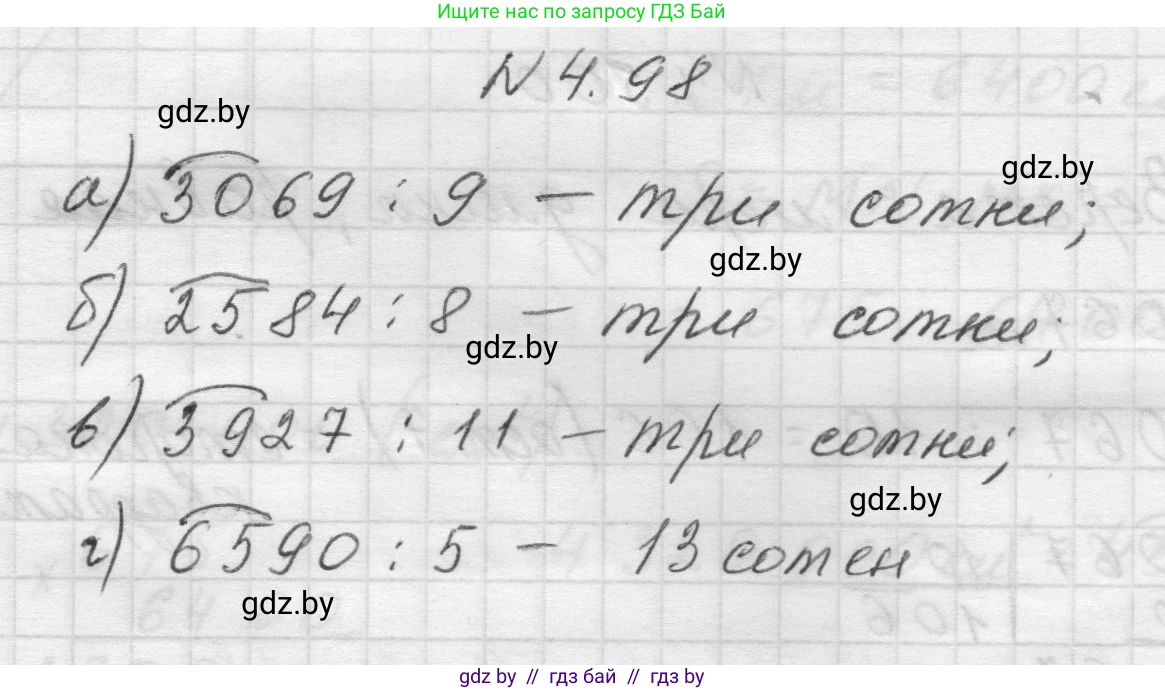 Ищите нас по запросу ГДЗ Бай
N 4.98
gdz.by
gdz.by
а) 3069 : 9 — три сотни;
gdz.by
б) 2584 : 8 — три сотни;
gdz.by
в) 3927 : 11 — три сотни;
gdz.by
г) 6590 : 5 — 13 сотен
gdz.by
gdz by // гдз бай // gdz by